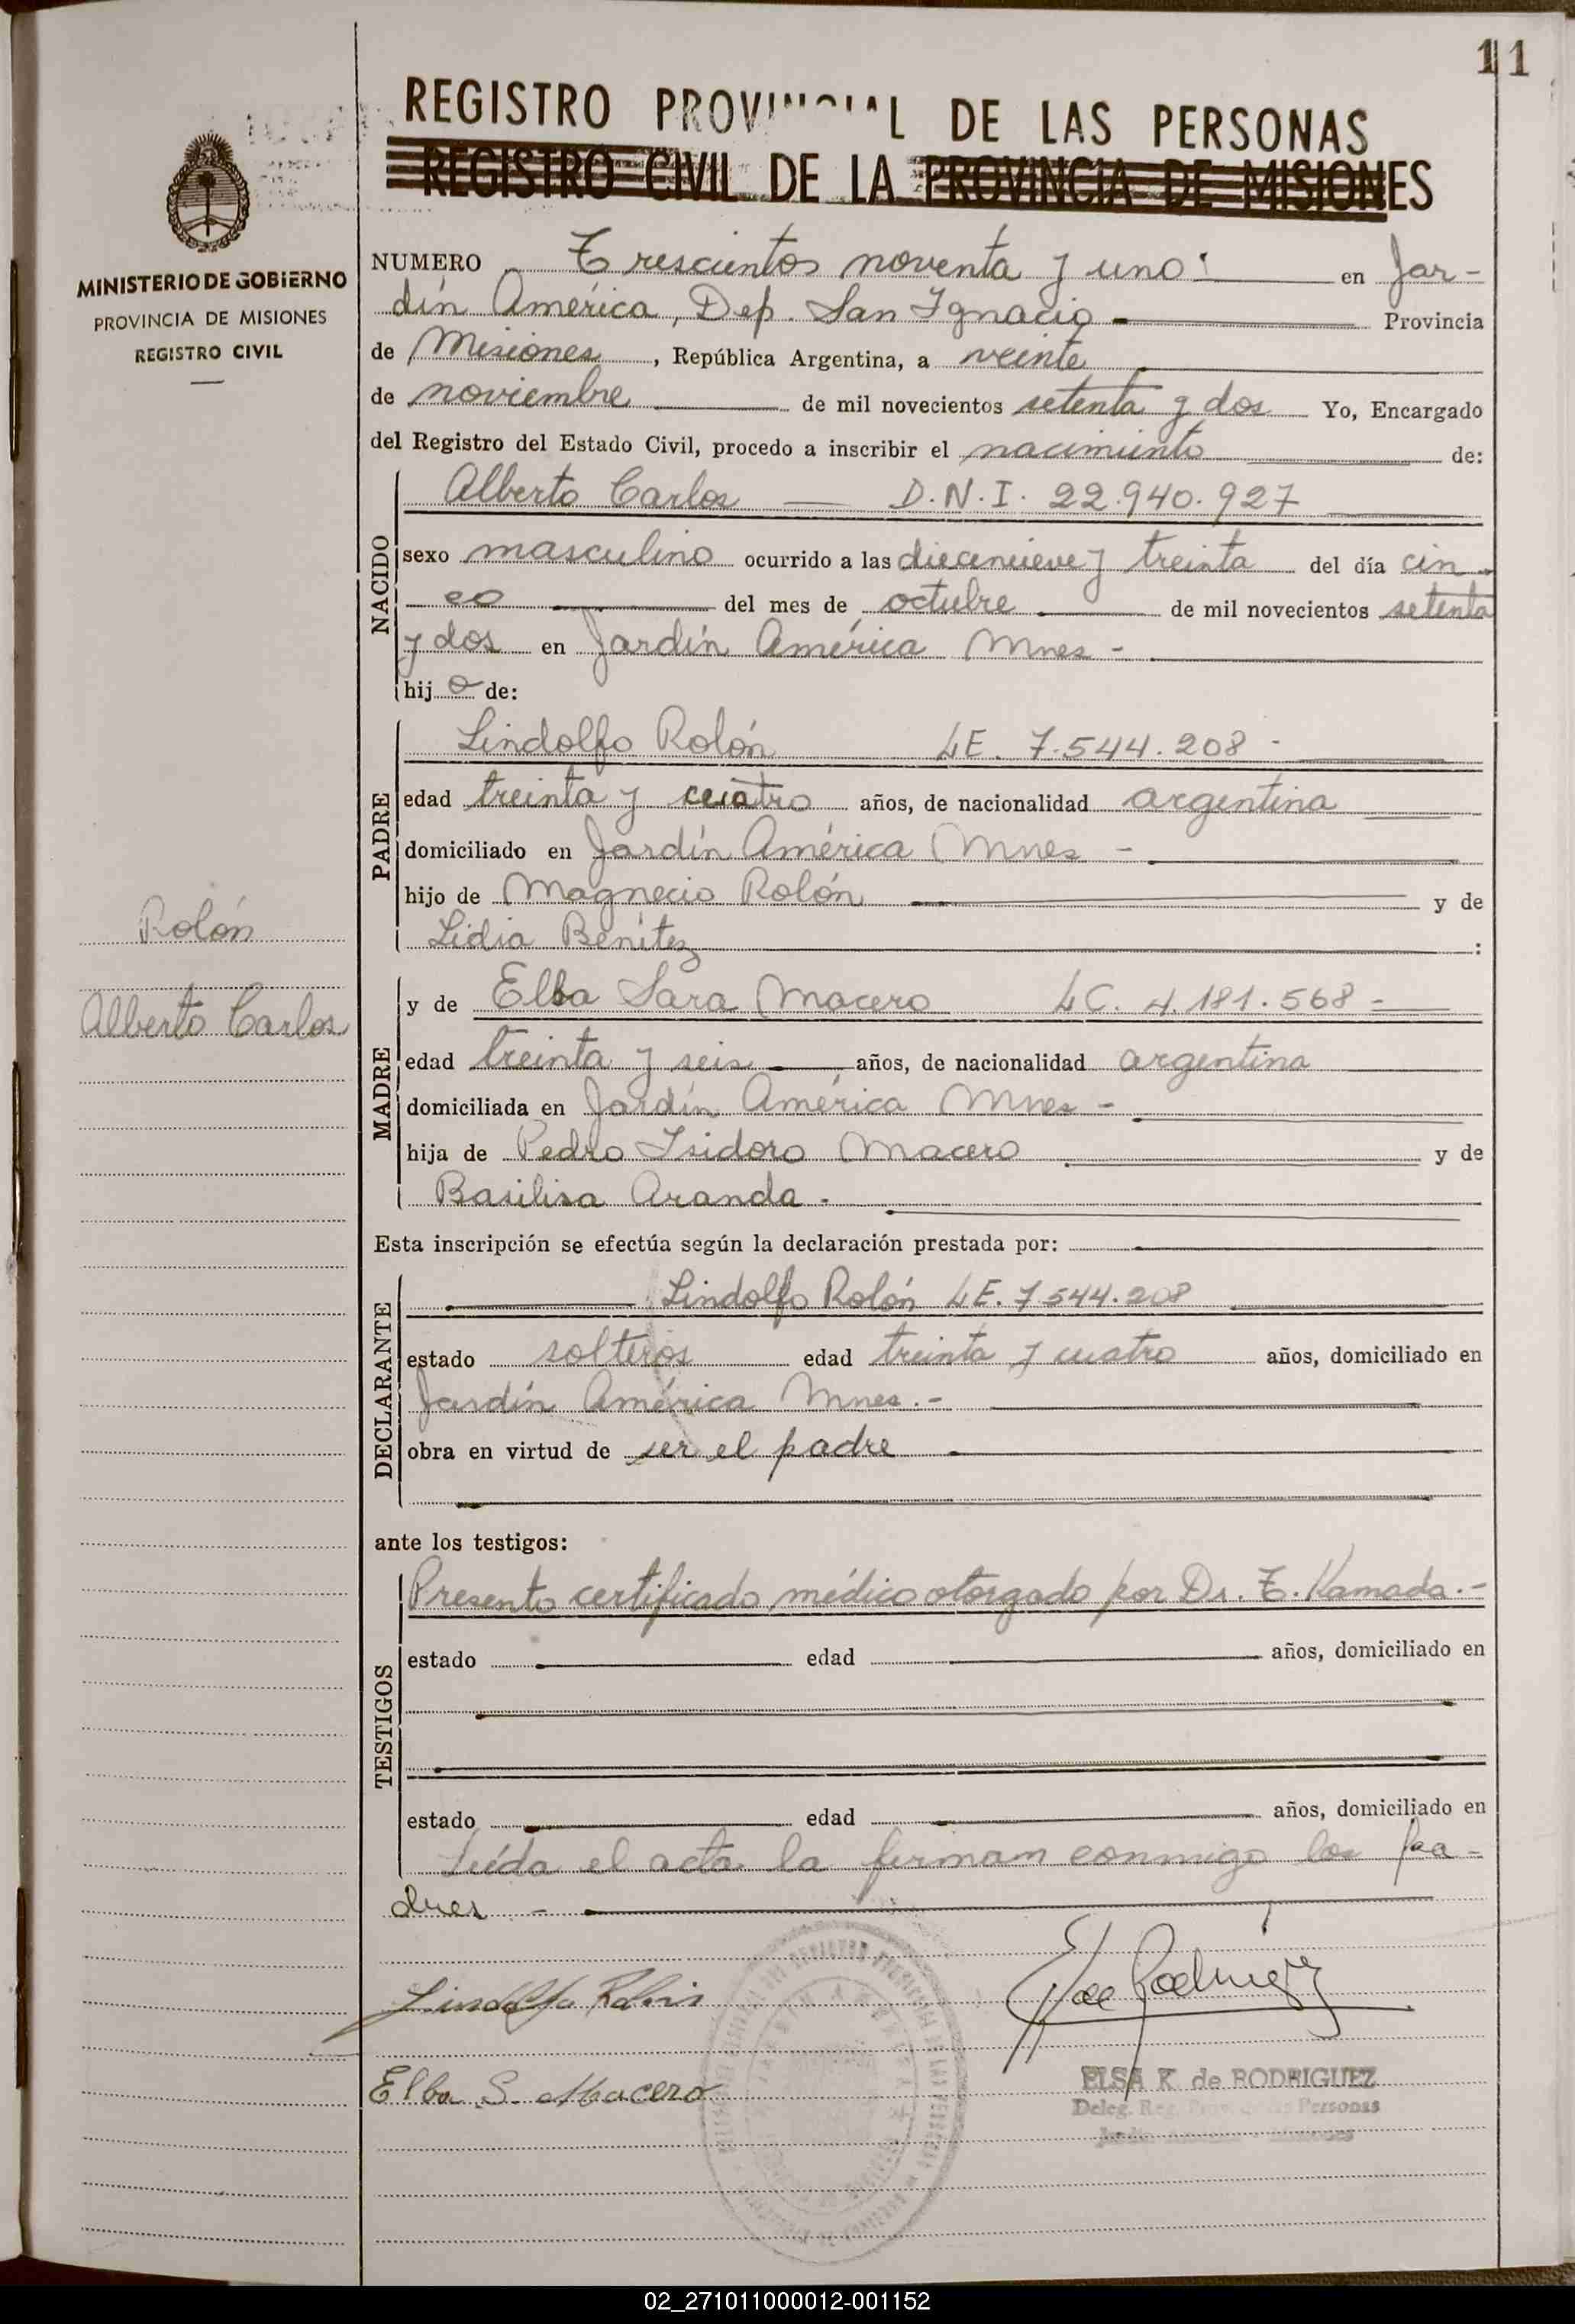 11
REGISTRO PROVINCIAL DE LAS PERSONAS
REGISTRO CIVIL DE LA PROVINCIA DE MISIONES
MINISTERIO DE GOBIERNO
PROVINCIA DE MISIONES
REGISTRO CIVIL
NUMERO Trescientos noventa y uno: en Jar-
dín América, Dep. San Ignacio Provincia
de Misiones, República Argentina, a veinte
de noviembre de mil novecientos setenta y dos Yo, Encargado
del Registro del Estado Civil, procedo a inscribir el nacimiento de:
NACIDO
Alberto Carlos — D.N.I. 22.940.927
sexo masculino ocurrido a las diecinueve y treinta del día cin-
co del mes de octubre de mil novecientos setenta
y dos en Jardín América Mnes -
hijo de:
PADRE
Lindolfo Rolón LE. 7.544.208 -
edad treinta y cuatro años, de nacionalidad argentina
domiciliado en Jardín América Mnes -
hijo de Magnecio Rolón y de
Lidia Benitez :
Rolón
Alberto Carlos
MADRE
y de Elba Sara Macero LC. 4.181.568 -
edad treinta y seis años, de nacionalidad argentina
domiciliada en Jardín América Mnes -
hija de Pedro Isidoro Macero y de
Basilisa Aranda -
Esta inscripción se efectúa según la declaración prestada por:
DECLARANTE
Lindolfo Rolón LE. 7.544.208
estado solteros edad treinta y cuatro años, domiciliado en
Jardín América Mnes.-
obra en virtud de ser el padre
ante los testigos:
TESTIGOS
Presento certificado médico otorgado por Dr. T. Kamada.-
estado edad años, domiciliado en
estado edad años, domiciliado en
Leída el acta la firman conmigo los pa-
dres -
Lindolfo Rolón
Elsa de Rodriguez
Elba S. Macero
ELSA K. de RODRIGUEZ
Deleg. Reg. Prov. de las Personas
Jardín América - Misiones
02_271011000012-001152